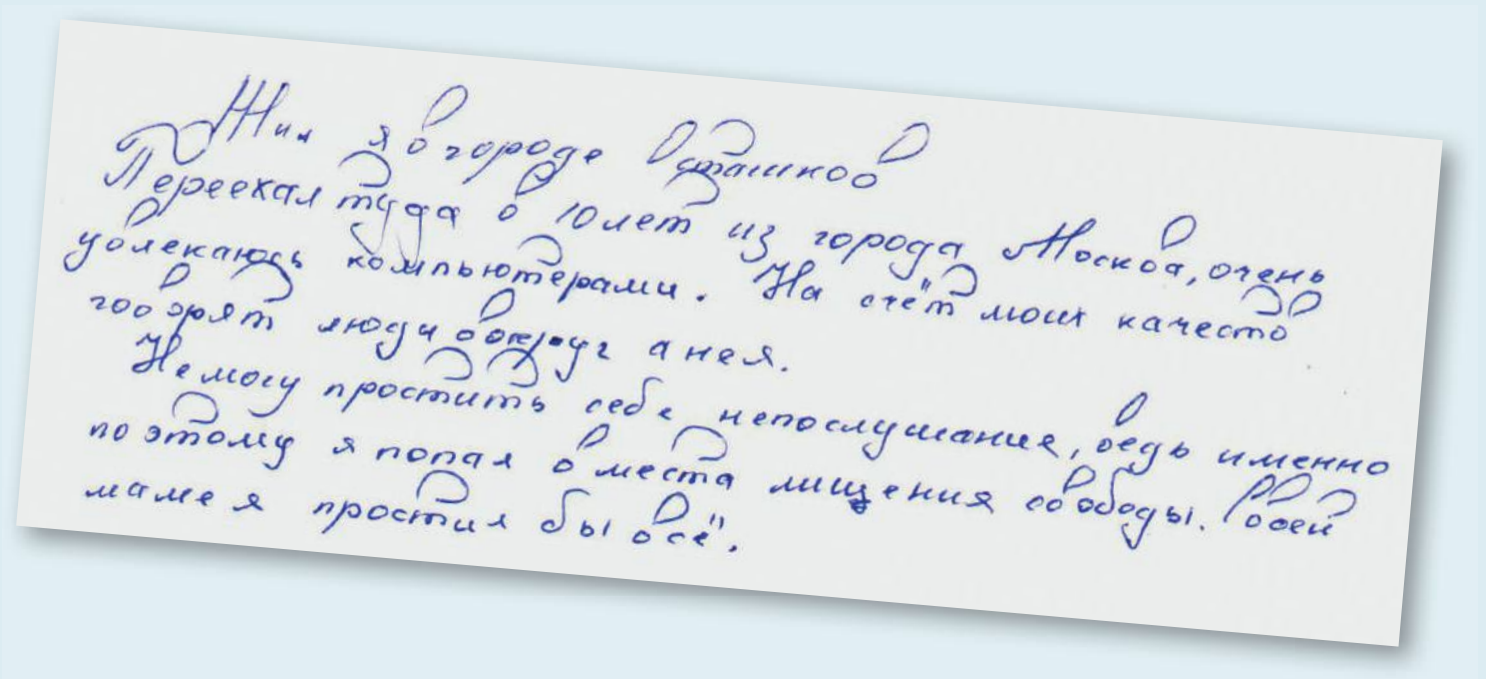 Жил я в городе Осташков
Переехал туда в 10 лет из города Москва, очень
увлекаюсь компьютерами. На счёт моих качеств
говорят люди вокруг а не я.
Не могу простить себе непослушание, ведь именно
поэтому я попал в места лишения свободы. Своей
маме я простил бы всё".